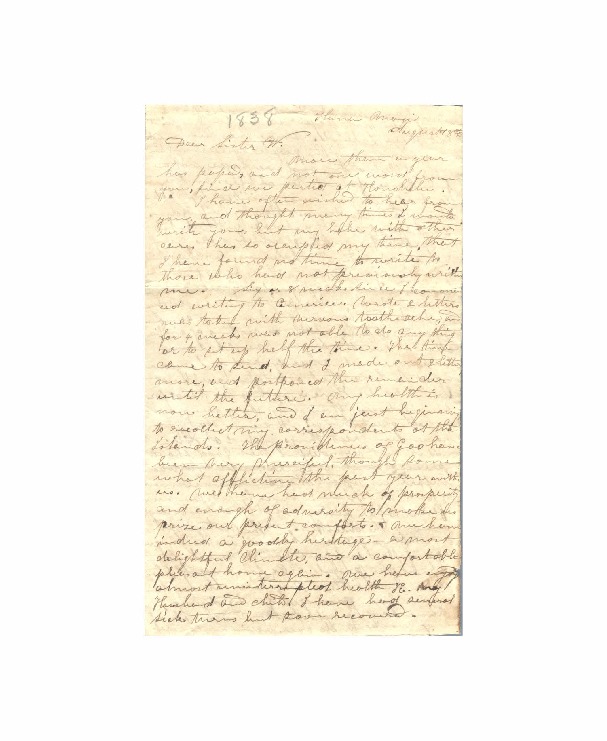 1838
August 8th
Dear Sister W.
more than a year
has passed and not one word from
you, since we parted at Honolulu.
I have often wished to hear from
you, and thought many times I would
write you, but my babe with other
cares has so occupied my time, that
I have found no time to write to
those who had not previously written
me. 6 or 8 weeks since I commenc
ed writing to America. Wrote 2 letters
was taken with nervous toothache, and
for 4 weeks was not able to do any thing
or to sit up half the time. The time
came to send, and I made out 2 letters
more, and postponed the remainder
until the future. My health is
now better, and I am just beginning
to recollect my correspondents at the
islands. The providences of God have
been very merciful, though some
what afflictive the past year with
us. We have had much of prosperity
and enough of adversity to make us
prize our present comforts. We have
indeed a goodly heritage - a most
delightful climate, and a comfortable
pleasant home again. We have enjoyed
almost uninterrupted health
Husband and child. I have had several
sick turns but soon recovered.